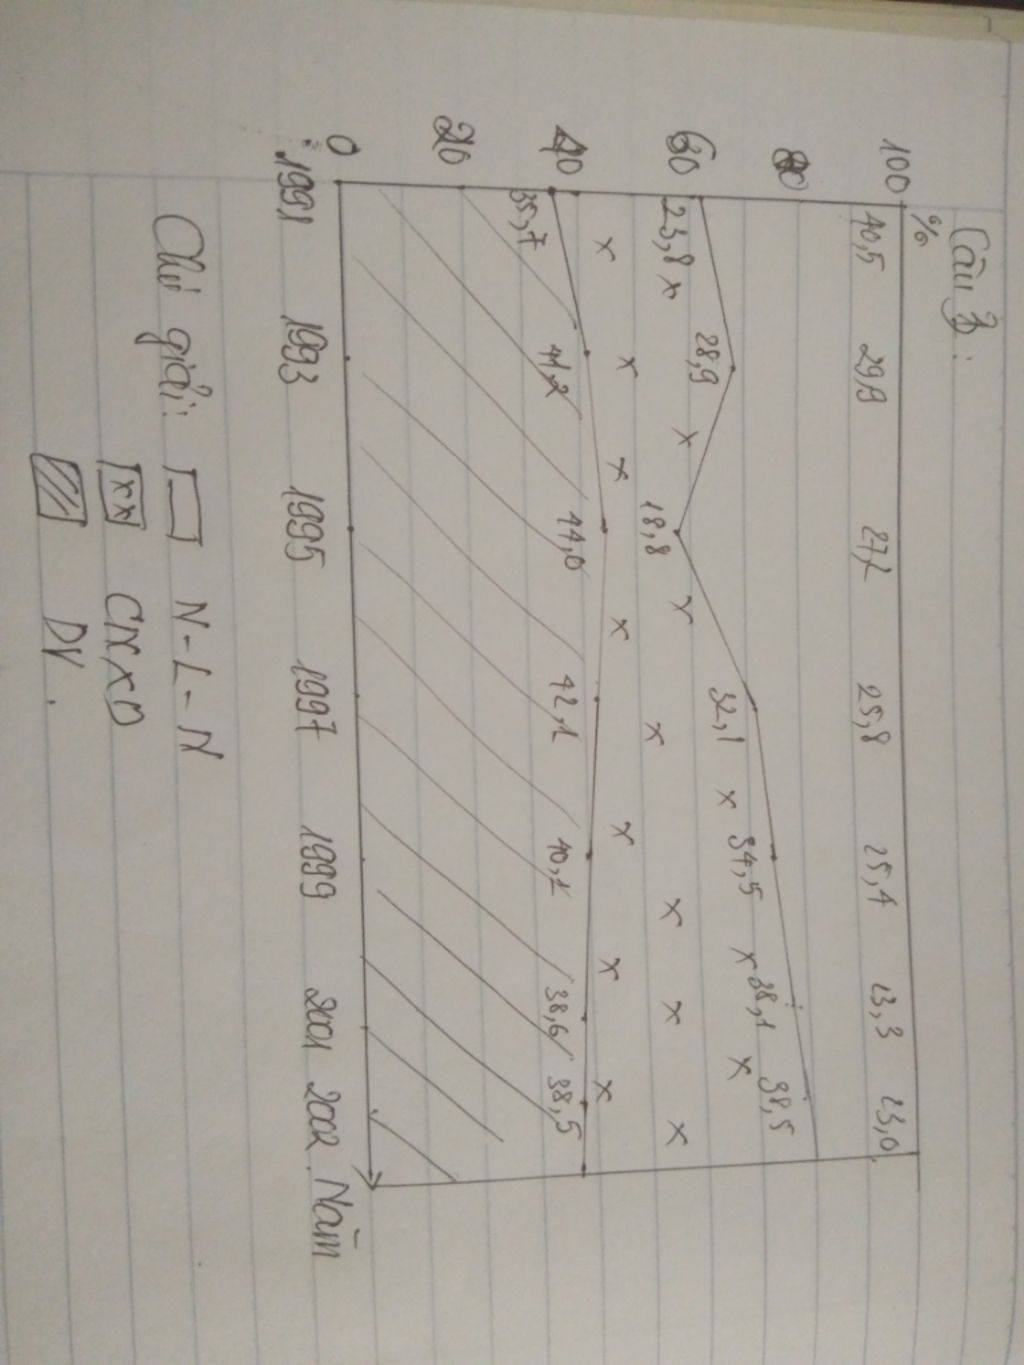 Câu 3:
%
100
80
60
40
20
0
40,5 29,9 27,2 25,8 25,4 23,3 23,0
23,8 28,9 18,8 32,1 34,5 38,1 38,5
35,7 41,2 44,0 42,1 40,1 38,6 38,5
1991 1993 1995 1997 1999 2001 2002 Năm
Chú giải: N-L-N
CNXD
DV.